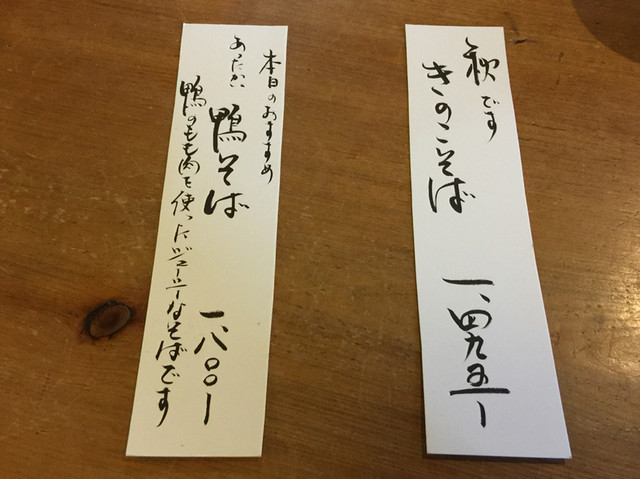 秋です
きのこそば 一、四九五ー
本日のおすすめ
あったかい 鴨そば 一八〇〇ー
鴨のもも肉を使ったジューシーなそばです